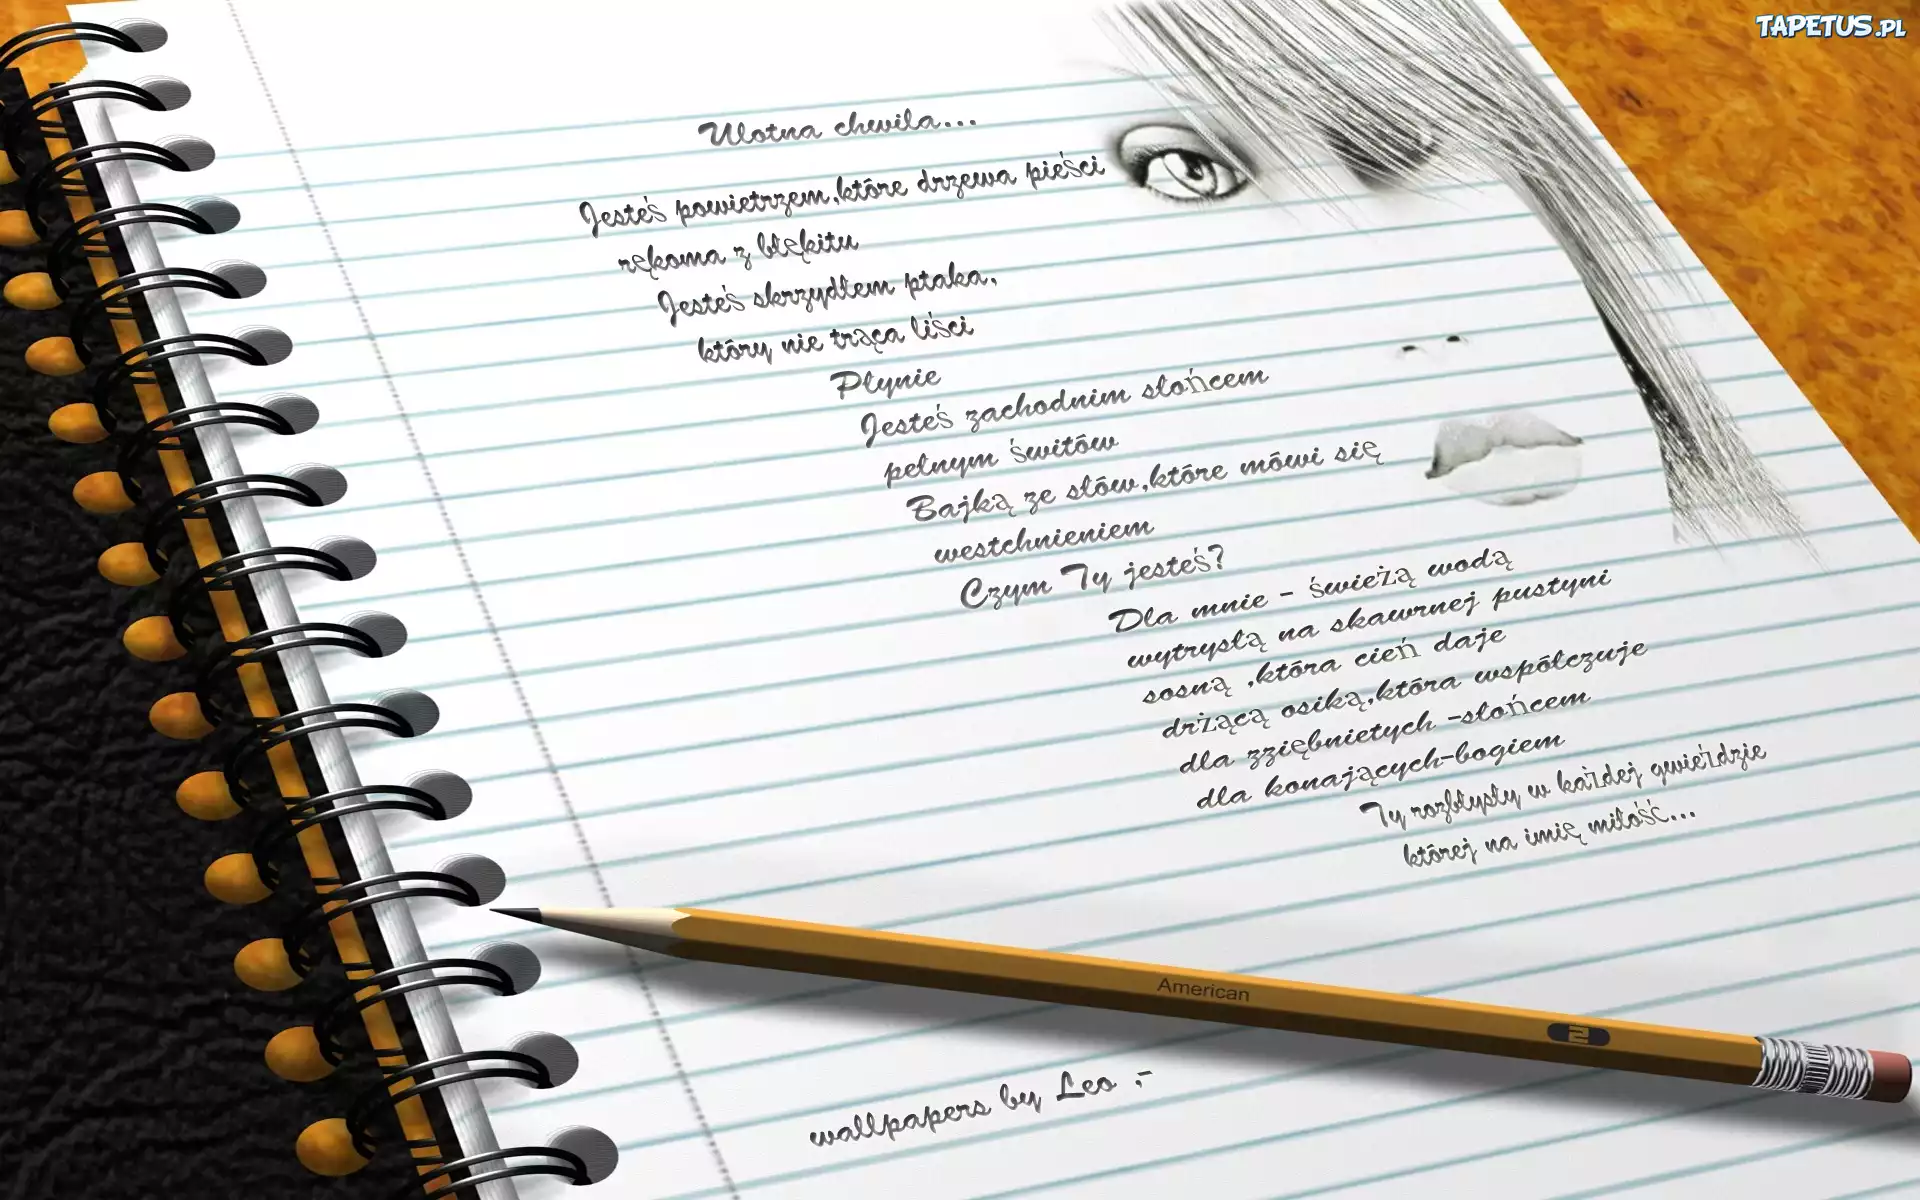 TAPETUS.PL
Ulotna chwila...
Jesteś powietrzem,które drzewa pieści
rękoma z błękitu
Jesteś skrzydłem ptaka,
który nie trąca liści
Płynie
Jesteś zachodnim słońcem
pełnym świtów
Bajką ze słów,które mówi się
westchnieniem
Czym Ty jesteś?
Dla mnie - świeżą wodą
wytrysłą na skawrnej pustyni
sosną ,która cień daje
drżącą osiką,która współczuje
dla zziębnietych -słońcem
dla konających-bogiem
Ty rozbłysły w każdej gwieździe
której na imię miłość...
American
2
wallpapers by Leo ,-